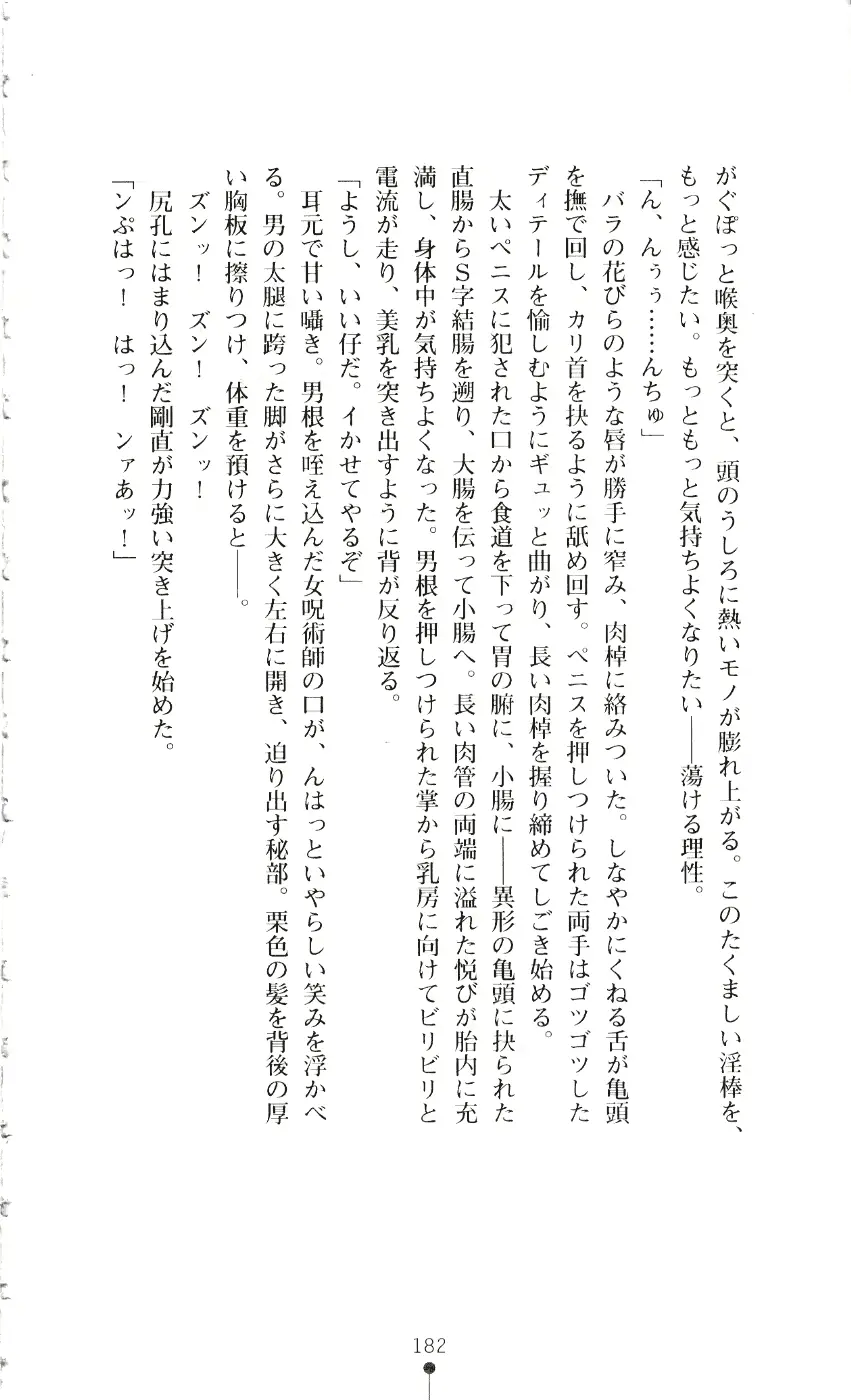 がぐぽっと喉奥を突くと、頭のうしろに熱いモノが膨れ上がる。このたくましい淫棒を、
もっと感じたい。もっともっと気持ちよくなりたい――蕩ける理性。
「ん、んぅぅ……んちゅ」
バラの花びらのような唇が勝手に窄み、肉棹に絡みついた。しなやかにくねる舌が亀頭
を撫で回し、カリ首を抉るように舐め回す。ペニスを押しつけられた両手はゴツゴツした
ディテールを愉しむようにギュッと曲がり、長い肉棹を握り締めてしごき始める。
太いペニスに犯された口から食道を下って胃の腑に、小腸に――異形の亀頭に抉られた
直腸からＳ字結腸を遡り、大腸を伝って小腸へ。長い肉管の両端に溢れた悦びが胎内に充
満し、身体中が気持ちよくなった。男根を押しつけられた掌から乳房に向けてビリビリと
電流が走り、美乳を突き出すように背が反り返る。
「ようし、いい仔だ。イかせてやるぞ」
耳元で甘い囁き。男根を咥え込んだ女呪術師の口が、んはっといやらしい笑みを浮かべ
る。男の太腿に跨った脚がさらに大きく左右に開き、迫り出す秘部。栗色の髪を背後の厚
い胸板に擦りつけ、体重を預けると――。
ズンッ！　ズン！　ズンッ！
尻孔にはまり込んだ剛直が力強い突き上げを始めた。
「ンぷはっ！　はっ！　ンァあッ！」
182